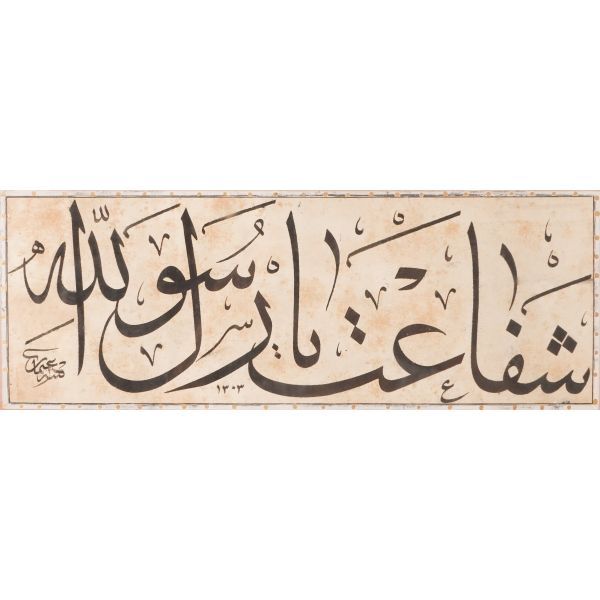 شفاعت يا رسول الله
١٣٠٣